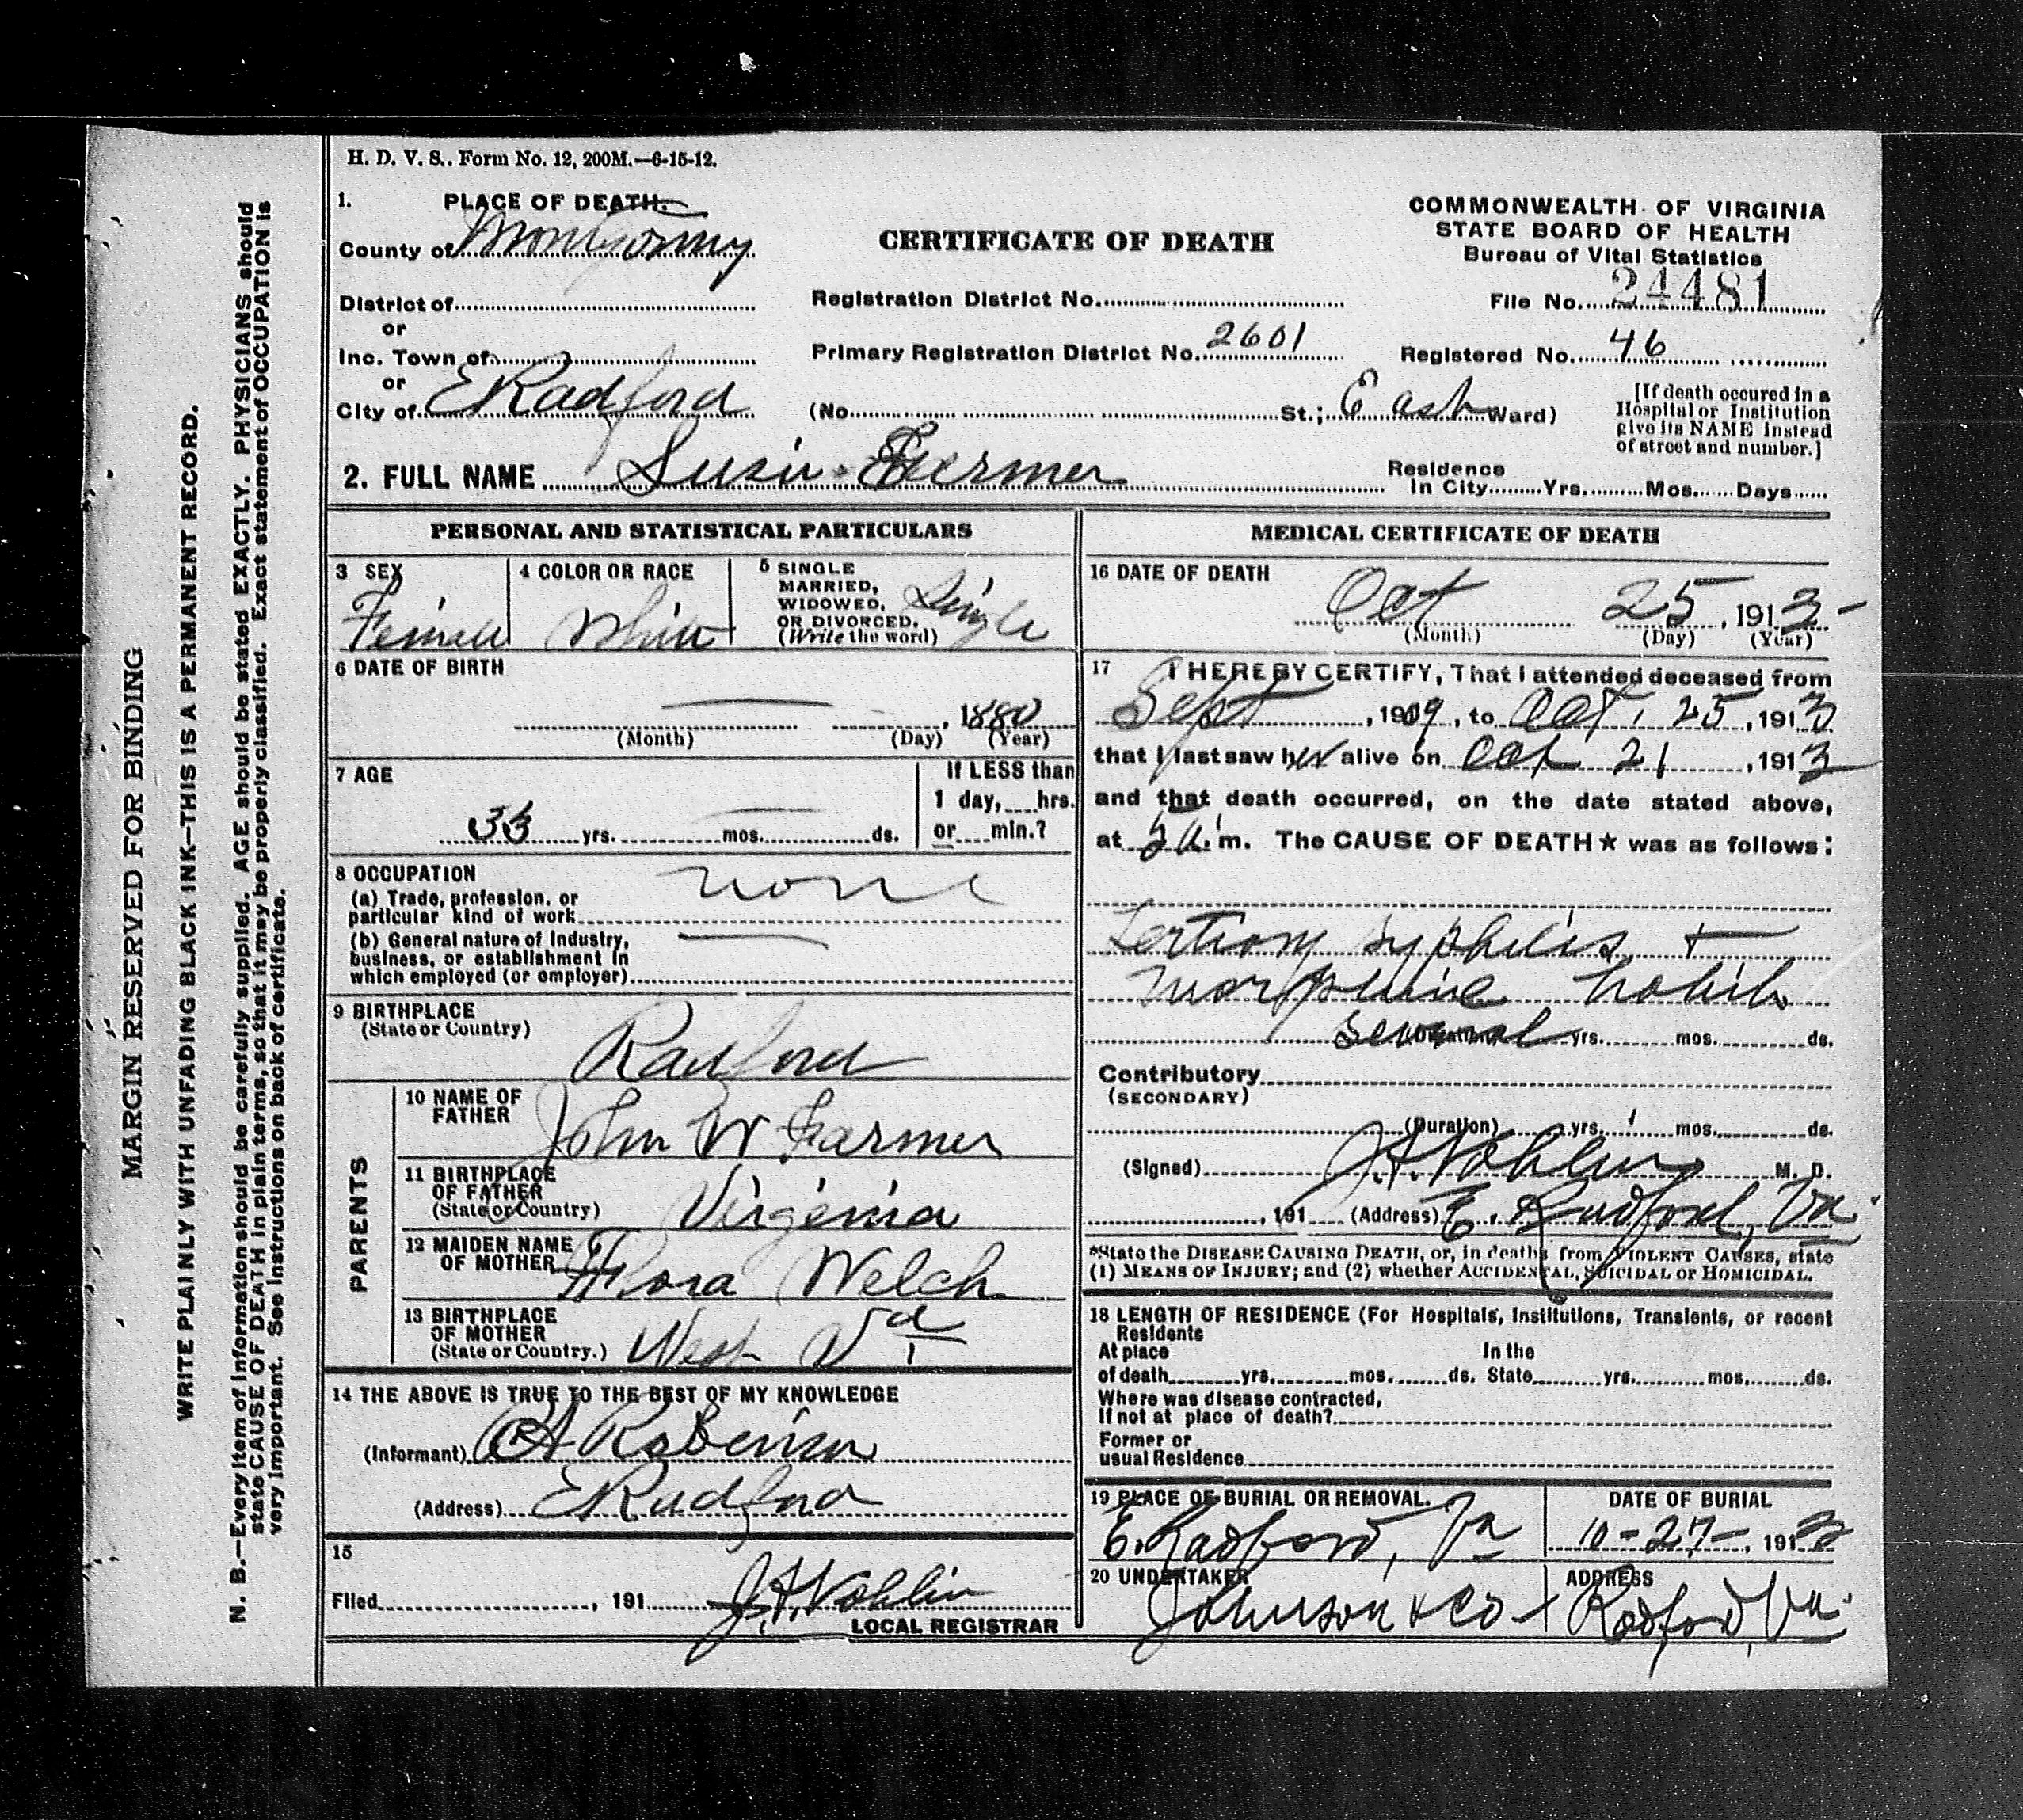 H. D. V. S.. Form No. 12, 200M.—6-15-12.
1. PLACE OF DEATH.
County of Montgomry
District of
or
Inc. Town of
or
City of E Radford
CERTIFICATE OF DEATH
Registration District No.
Primary Registration District No. 2601
(No. St.; East Ward)
COMMONWEALTH OF VIRGINIA
STATE BOARD OF HEALTH
Bureau of Vital Statistics
File No. 24481
Registered No. 46
[If death occured in a
Hospital or Institution
give its NAME instead
of street and number.]
2. FULL NAME Susie Farmer
Residence
In City Yrs. Mos. Days
PERSONAL AND STATISTICAL PARTICULARS
3 SEX
Female
4 COLOR OR RACE
White
5 SINGLE
MARRIED,
WIDOWED,
OR DIVORCED.
(Write the word)
Single
6 DATE OF BIRTH
, 1880
(Month) (Day) (Year)
7 AGE
33 yrs. mos. ds.
If LESS than
1 day, hrs.
or min.?
8 OCCUPATION
(a) Trade, profession, or
particular kind of work
none
(b) General nature of Industry,
business, or establishment in
which employed (or employer)
9 BIRTHPLACE
(State or Country)
Radford
PARENTS
10 NAME OF
FATHER
John W Farmer
11 BIRTHPLACE
OF FATHER
(State or Country)
Virginia
12 MAIDEN NAME
OF MOTHER
Flora Welch
13 BIRTHPLACE
OF MOTHER
(State or Country.)
West Va
14 THE ABOVE IS TRUE TO THE BEST OF MY KNOWLEDGE
(Informant) Robinson
(Address) E Radford
15
Filed , 191
LOCAL REGISTRAR
MEDICAL CERTIFICATE OF DEATH
16 DATE OF DEATH
Oct 25, 1913
(Month) (Day) (Year)
17 I HEREBY CERTIFY, That I attended deceased from
Sept , 1909, to Oct, 25, 1913
that I last saw her alive on Oct 21 , 1913
and that death occurred, on the date stated above,
at m. The CAUSE OF DEATH★ was as follows:
Tertiary syphilis +
morphine habit
several yrs. mos. ds.
Contributory
(SECONDARY)
(Duration) yrs. mos. ds.
(Signed) M. D.
, 191 (Address) E. Radford, Va.
*State the DISEASE CAUSING DEATH, or, in deaths from VIOLENT CAUSES, state
(1) MEANS OF INJURY; and (2) whether ACCIDENTAL, SUICIDAL or HOMICIDAL.
18 LENGTH OF RESIDENCE (For Hospitals, Institutions, Transients, or recent
Residents
At place In the
of death yrs. mos. ds. State yrs. mos. ds.
Where was disease contracted,
If not at place of death?
Former or
usual Residence
19 PLACE OF BURIAL OR REMOVAL.
E. Radford, Va
DATE OF BURIAL
10-27-, 1913
20 UNDERTAKER
Johnson & Co
ADDRESS
Radford, Va.
MARGIN RESERVED FOR BINDING
WRITE PLAINLY WITH UNFADING BLACK INK—THIS IS A PERMANENT RECORD.
N. B.—Every item of information should be carefully supplied. AGE should be stated EXACTLY. PHYSICIANS should
state CAUSE OF DEATH in plain terms, so that it may be properly classified. Exact statement of OCCUPATION is
very important. See instructions on back of certificate.